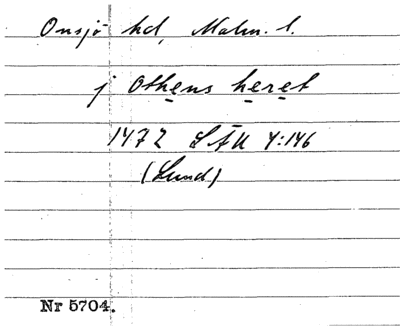 Onsjö hd, Malm. l.
j Othens heret
1472 LÄU 4:146
(Lund)
Nr 5704.